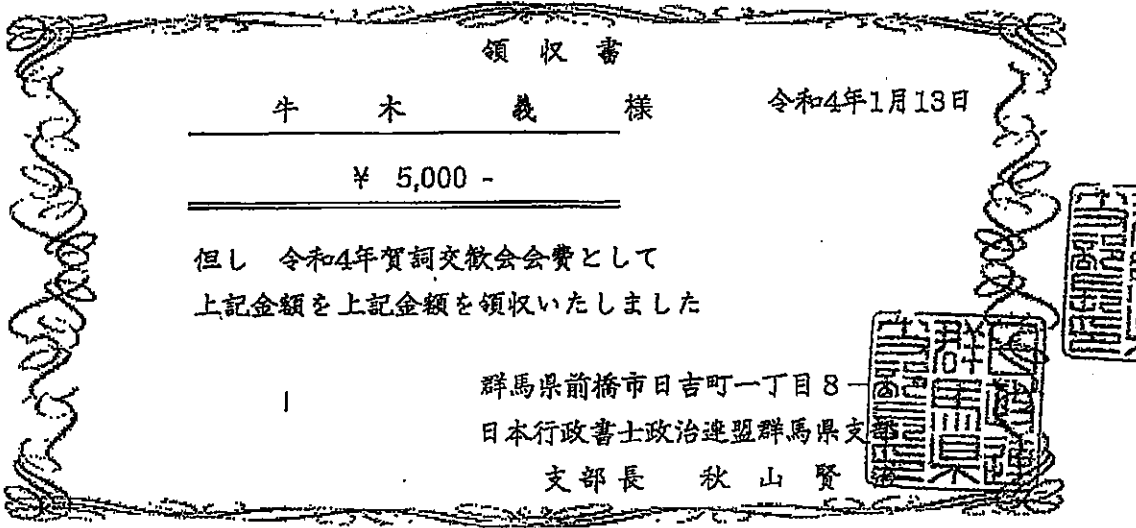 領収書
牛木 義 様 令和4年1月13日
¥ 5,000 -
但し 令和4年賀詞交歓会会費として
上記金額を上記金額を領収いたしました
群馬県前橋市日吉町一丁目8－
日本行政書士政治連盟群馬県支部
支部長 秋山賢